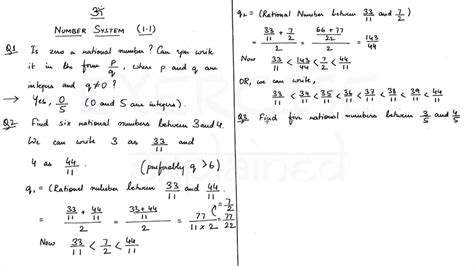 ॐ
NUMBER SYSTEM (1.1)
Q1 Is zero a rational number? Can you write
it in the form p/q, where p and q are
integers and q≠0?
→ Yes, 0/5 (0 and 5 are integers).
Q2 Find six rational numbers between 3 and 4.
We can write 3 as 33/11 and
4 as 44/11. (preferably q > 6)
q₁ = (Rational number between 33/11 and 44/11)
= (33/11 + 44/11)/2 = (33+44/11)/2 = 77/(11×2) = 77/22 = 7/2
Now 33/11 < 7/2 < 44/11
q₂ = (Rational Number between 33/11 and 7/2)
= (33/11 + 7/2)/2 = (66+77/22)/2 = 143/44
Now 33/11 < 143/44 < 7/2 < 44/11
OR, we can write,
33/11 < 34/11 < 35/11 < 36/11 < 37/11 < 38/11 < 39/11 < 44/11
Q3 Find five rational numbers between 3/5 and 4/5